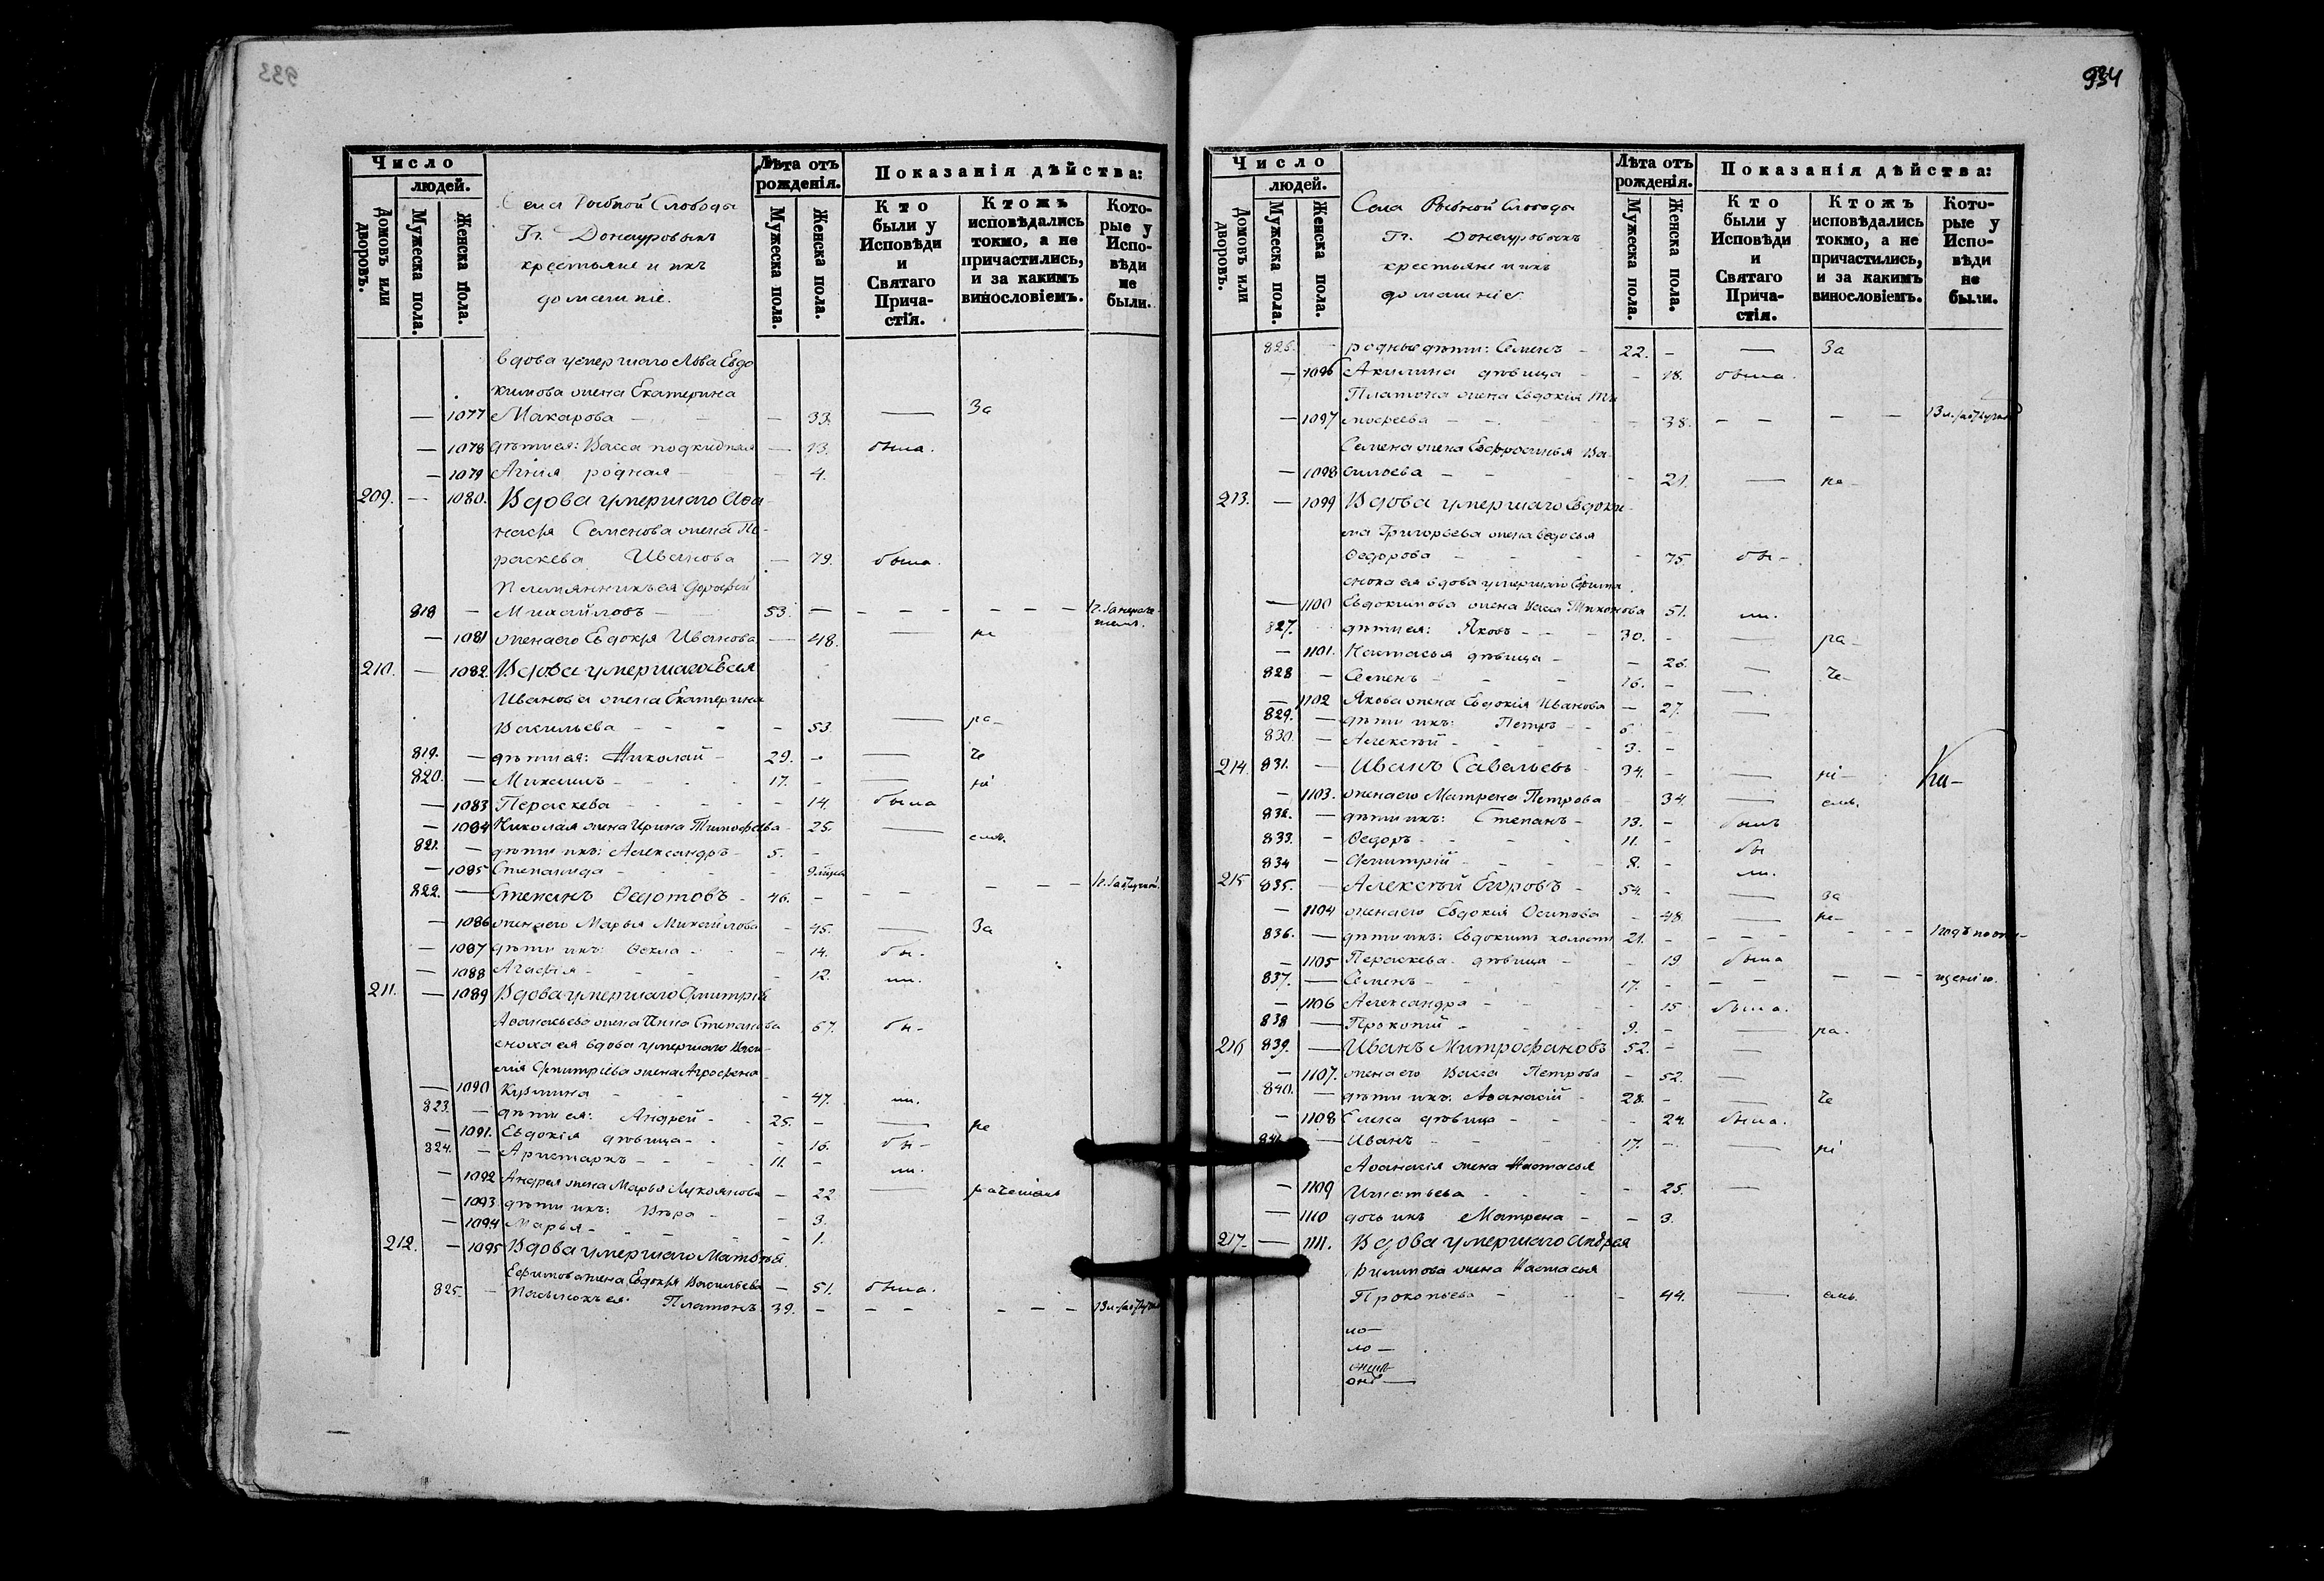 933
Число
людей.
Домовъ или дворовъ.
Мужеска пола.
Женска пола.
Села Рыбной Слободы
Гг. Донауровыхъ
крестьяне и ихъ
домашніе.
Лѣта отъ рожденія.
Мужеска пола.
Женска пола.
Показанія дѣйства:
Кто были у Исповѣди и Святаго Причастія.
Ктожъ исповѣдались токмо, а не причастились, и за какимъ винословіемъ.
Которые у Исповѣди не были.
вдова умершаго Льва Евдо
кимова жена Екатерина
— 1077 Макарова — 33. — За
— 1078 дѣти ея: Васса подкидная — 13. была.
— 1079 Агнія родная — 4.
209. — 1080. Вдова умершаго Афа
насія Семенова жена Па-
раскева Иванова — 79. была.
Племянникъ ея Дорофей
818 — Михайловъ — 53. — — — — — —
— 1081 жена его Евдокія Иванова — 48. — не
210. — 1082. Вдова умершаго Евсея
Иванова жена Екатерина
Васильева — 53 — ра-
819. — дѣти ея: Николай 29. — — че
820. — Михаилъ — 17. — ні
— 1083 Параскева — 14. была
— 1084 Николая жена Ирина Тимофеева 25. — емъ.
821. — дѣти ихъ: Александръ 5. —
— 1085 Степанида —
822. — Степанъ Федотовъ 46. — — — — —
— 1086 жена его Марья Михайлова — 45. — За
— 1087 дѣти ихъ: Фекла — 14. бы-
— 1088 Агафія — 12. ли.
211. — 1089 Вдова умершаго Дмитрія
Афанасьева жена Анна Степанова 67. бы-
сноха ея вдова умершаго Васи-
лія Дмитріева жена Агрофена
— 1090 Кузмина — 47. ли.
823. — дѣти ея: Андрей 25. — — не
— 1091. Евдокія дѣвица — 16. бы-
824. — Аристархъ 11. — ли.
— 1092 Андрея жена Марья Лукоянова — 22. — раченіемъ
— 1093 дѣти ихъ: Вѣра — 3.
— 1094 Марья — 1.
212. — 1095 Вдова умершаго Матвѣя
Ефимова жена Евдокія Васильева — 51. была.
825. — Пасынокъ ея: Платонъ 39. — — — — —
934
Число
людей.
Домовъ или дворовъ.
Мужеска пола.
Женска пола.
Села Рыбной Слободы
Гг. Донауровыхъ
крестьяне и ихъ
домашніе
Лѣта отъ рожденія.
Мужеска пола.
Женска пола.
Показанія дѣйства:
Кто были у Исповѣди и Святаго Причастія.
Ктожъ исповѣдались токмо, а не причастились, и за какимъ винословіемъ.
Которые у Исповѣди не были.
826. — родные дѣти: Семенъ 22. — — За
— 1096 Акилина дѣвица — 18. была.
Платона жена Евдокія Ти
— 1097 мофеева — 38. — — — —
Семена жена Евфросинья Ва
— 1098 сильева — 21. — не-
213. — 1099 Вдова умершаго Евдоки-
ма Григорьева жена Федосья
Федорова — 75. бы-
сноха ея вдова умершаго Ефима
— 1100 Евдокимова жена Васса Тихонова 51. ли.
827. дѣти ея: Яковъ 30. — — ра-
— 1101. Настасья дѣвица — 26. —
828 — Семенъ 16. — — че-
— 1102 Якова жена Евдокія Иванова — 27. —
829. — дѣти ихъ: Петръ 6 —
830. — Алексѣй 3. —
214. 831. — Иванъ Савельевъ 34. — — ні-
— 1103. жена его Матрена Петрова 34. — емъ.
832. — дѣти ихъ: Степанъ 13. — былъ
833. — Федоръ 11. — бы
834 — Дмитрій 8. — ли.
215 835. — Алексѣй Егоровъ 54. — — За
— 1104 жена его Евдокія Осипова — 48. — не-
836. — дѣти ихъ: Евдокимъ холостъ 21. — — — — 1 годъ по отлу-
— 1105 Параскева дѣвица — 19. была
837. — Семенъ 17. — — — — — щенію.
— 1106 Александра — 15. была.
838 — Прокопій 9. — — ра-
216 839. — Иванъ Митрофановъ 52. — —
— 1107. жена его Васса Петрова — 52. —
840. — дѣти ихъ: Афанасій 28. — — че
— 1108 Елена дѣвица — 24. была.
841. — Иванъ 17. — — ні
Афанасія жена Настасья
— 1109 Игнатьева — 25. —
— 1110 дочь ихъ Матрена — 3.
217. — 1111. Вдова умершаго Андрея
Филипова жена Настасья
Прокопьева — 44. — емъ.